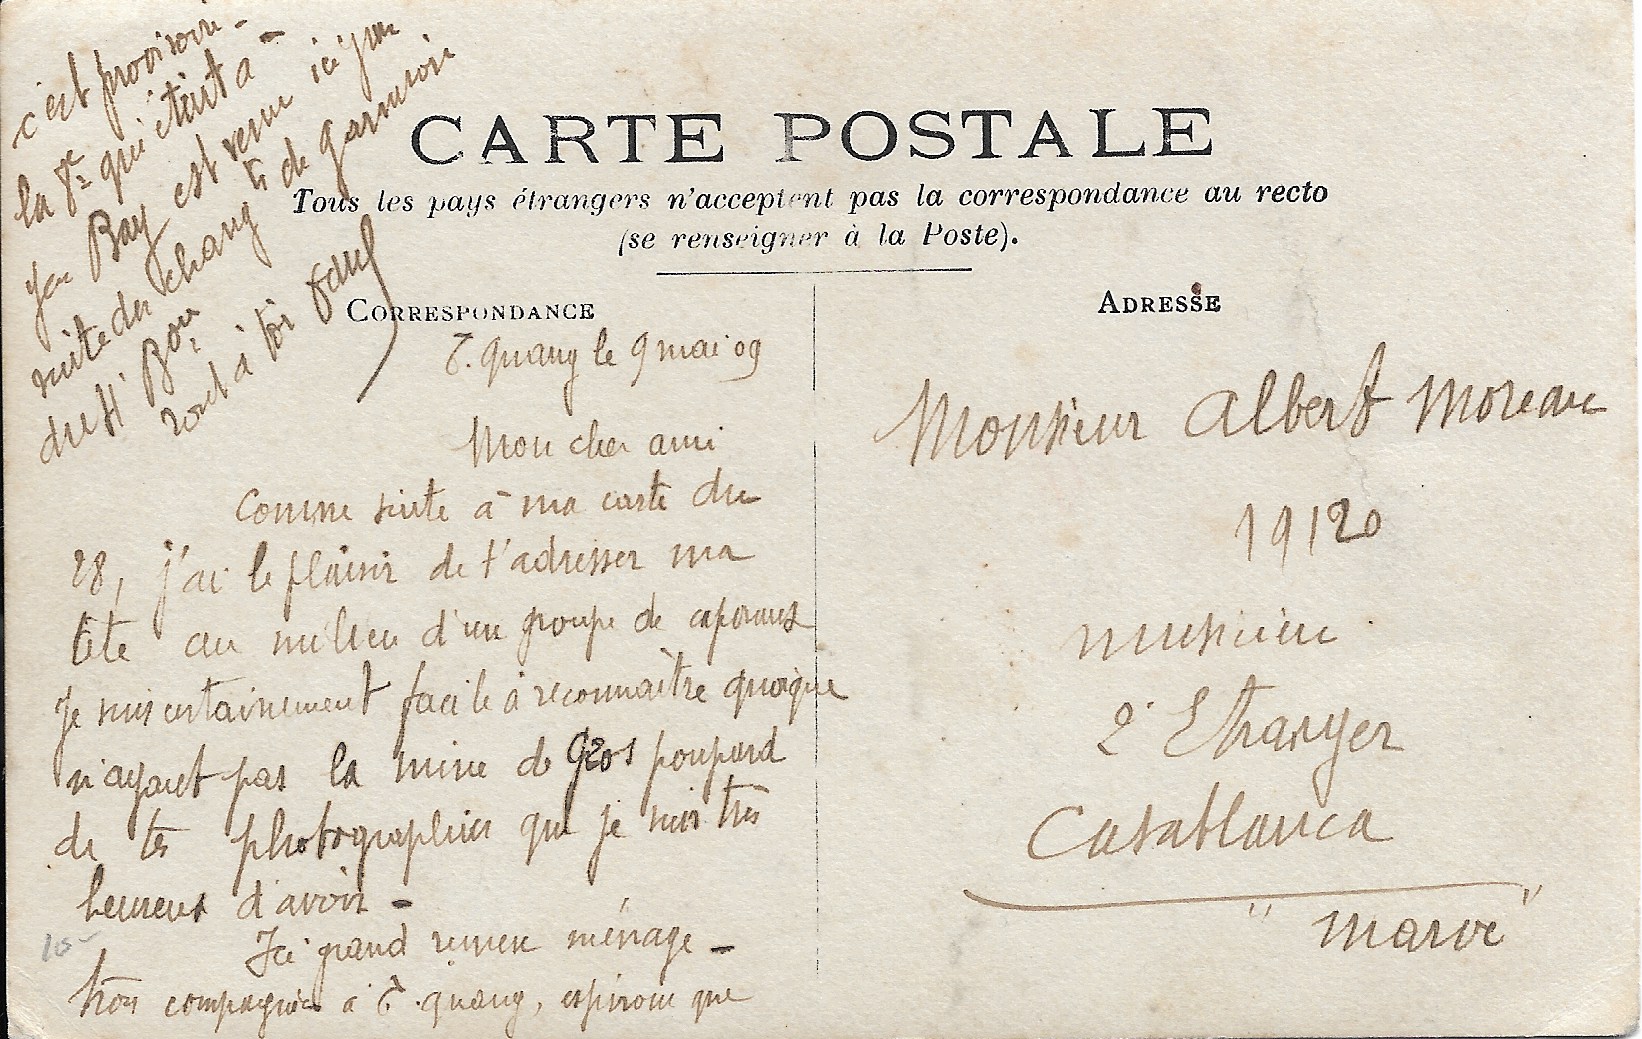 CARTE POSTALE
Tous les pays étrangers n'acceptent pas la correspondance au recto
(se renseigner à la Poste).
CORRESPONDANCE
T. Quang le 9 mai 09
Mon cher ami
Comme suite à ma carte du
28, j'ai le plaisir de t'adresser ma
tête au milieu d'un groupe de caporaux
Je suis certainement facile à reconnaître quoique
n'ayant pas la mine de gros poupard
de tes photographies que je suis très
heureux d'avoir -
Ici grand remue ménage -
trois compagnies à T. Quang, espérons que
c'est provisoire -
la 8e qui était à -
Yen Bay est venue ici par
suite du chang t de garnison
du Bon
tout à toi
ADRESSE
Monsieur Albert Moreau
19120
musicien
2e Etranger
Casablanca
"Maroc"
10-